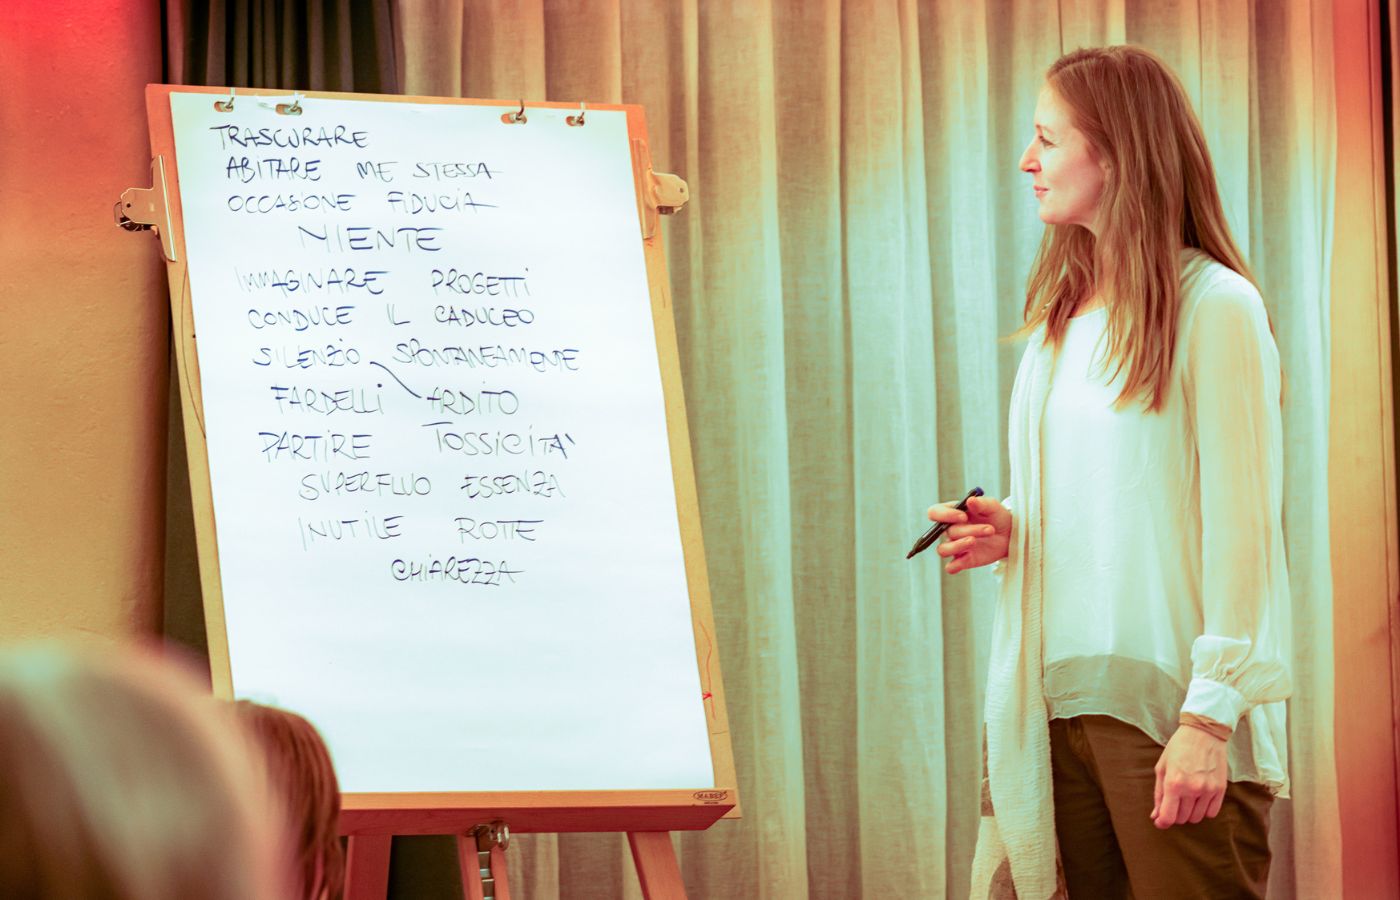 TRASCURARE
ABITARE ME STESSA
OCCASIONE FIDUCIA
NIENTE
IMMAGINARE PROGETTI
CONDUCE IL CADUCEO
SILENZIO SPONTANEAMENTE
FARDELLI ARDITO
PARTIRE TOSSICITA'
SUPERFLUO ESSENZA
INUTILE ROTTE
CHIAREZZA